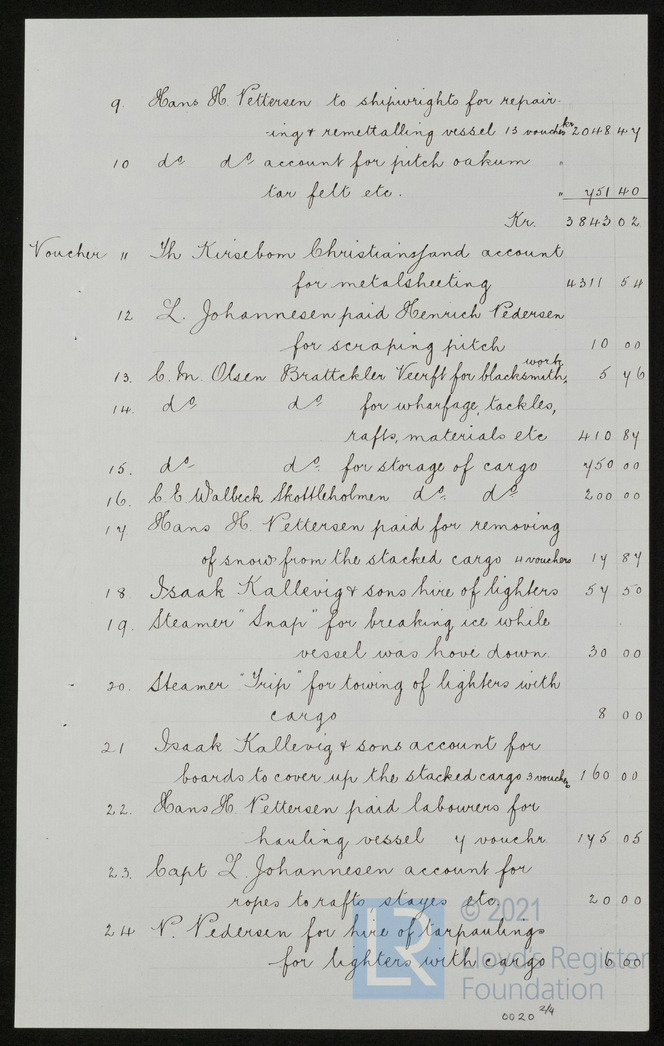 9. Hans H. Pettersen to shipwrights for repair-
ing & remettalling vessel 13 vouchs kr 2048 47
10 do do account for pitch oakum "
tar felt etc. " 751 40
Kr. 3843 02
Voucher 11 Th Kirsebom Christianssand account
for metalsheeting 4311 54
12 L. Johannesen paid Henrich Pedersen
for scraping pitch 10 00
13. C. M. Olsen Brattekler Veerft for blacksmith, work 5 76
14. do do for wharfage, tackles,
rafts, materials etc 410 87
15. do do. for storage of cargo 750 00
16. C. E. Walbeck Skottleholmen do. do. 200 00
17 Hans H. Pettersen paid for removing
of snow from the stacked cargo 4 vouchers 17 87
18. Isaak Kallevig & sons hire of lighters 57 50
19. Steamer "Snap" for breaking ice while
vessel was hove down 30 00
20. Steamer "Trip" for towing of lighters with
cargo 8 00
21 Isaak Kallevig & sons account for
boards to cover up the stacked cargo 3 vouchs 160 00
22. Hans H. Pettersen paid labourers for
hauling vessel 7 vouchr. 175 05
23. Capt L. Johannesen account for
ropes to rafts stayes etc. 20 00
24 N. Pedersen for hire of tarpaulings
for lighters with cargo 6 00
LR © 2021
Lloyd's Register
Foundation
0020 2/4